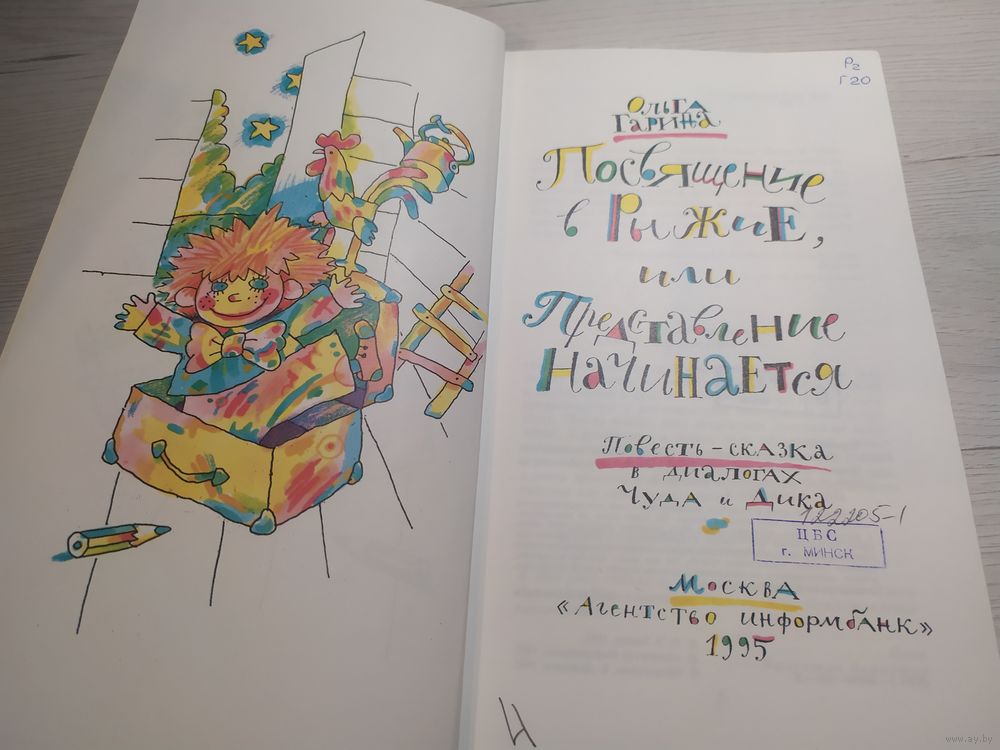 Р2
Г20
Ольга
Гарина
Посвящение
в Рыжие,
или
Представление
начинается
Повесть-сказка
в диалогах
Чуда и Дика
122205-1
ЦБС
г. МИНСК
Москва
«Агентство информбанк»
1995
Ч
www.ay.by